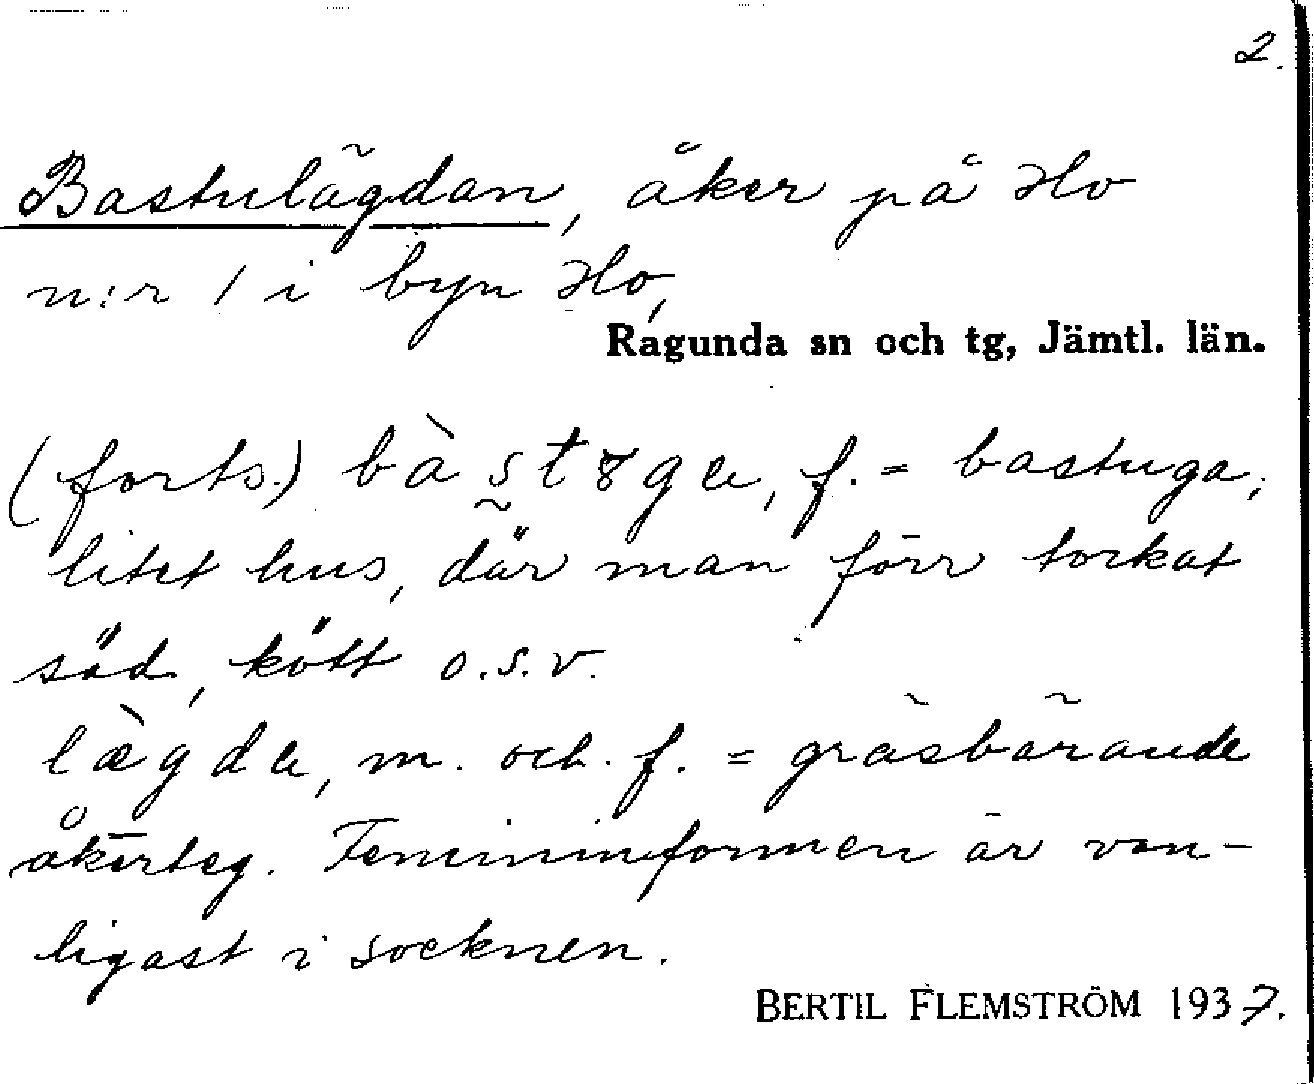 2.
Bastulägdan, åker på Ho
n:r 1 i byn Ho,
Ragunda sn och tg, Jämtl. län.
(forts.) bàstɤga, f. = bastuga,
litet hus, där man förr torkat
säd, kött o.s.v.
lægda, m. och f. = gräsbärande
åkerteg. Femininformen är van-
ligast i socknen.
BERTIL FLEMSTRÖM 1937.